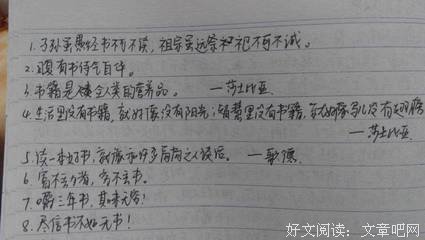 1.子孙虽愚经书不可不读,祖宗虽远祭祀不可不诚。
2.腹有书诗气自华。
3.书籍是全人类的营养品。 —莎士比亚
4.生活里没有书籍,就好像没有阳光;智慧里没有书籍,就好像鸟儿没有翅膀
—莎士比亚
5.读一本好书,就像和许多高尚之人谈话。 —歌德
6.富不去为,穷不丢书。
7.嚼三年书,其味无穷!
8.尽信书不如无书!
好文阅读:文章吧网